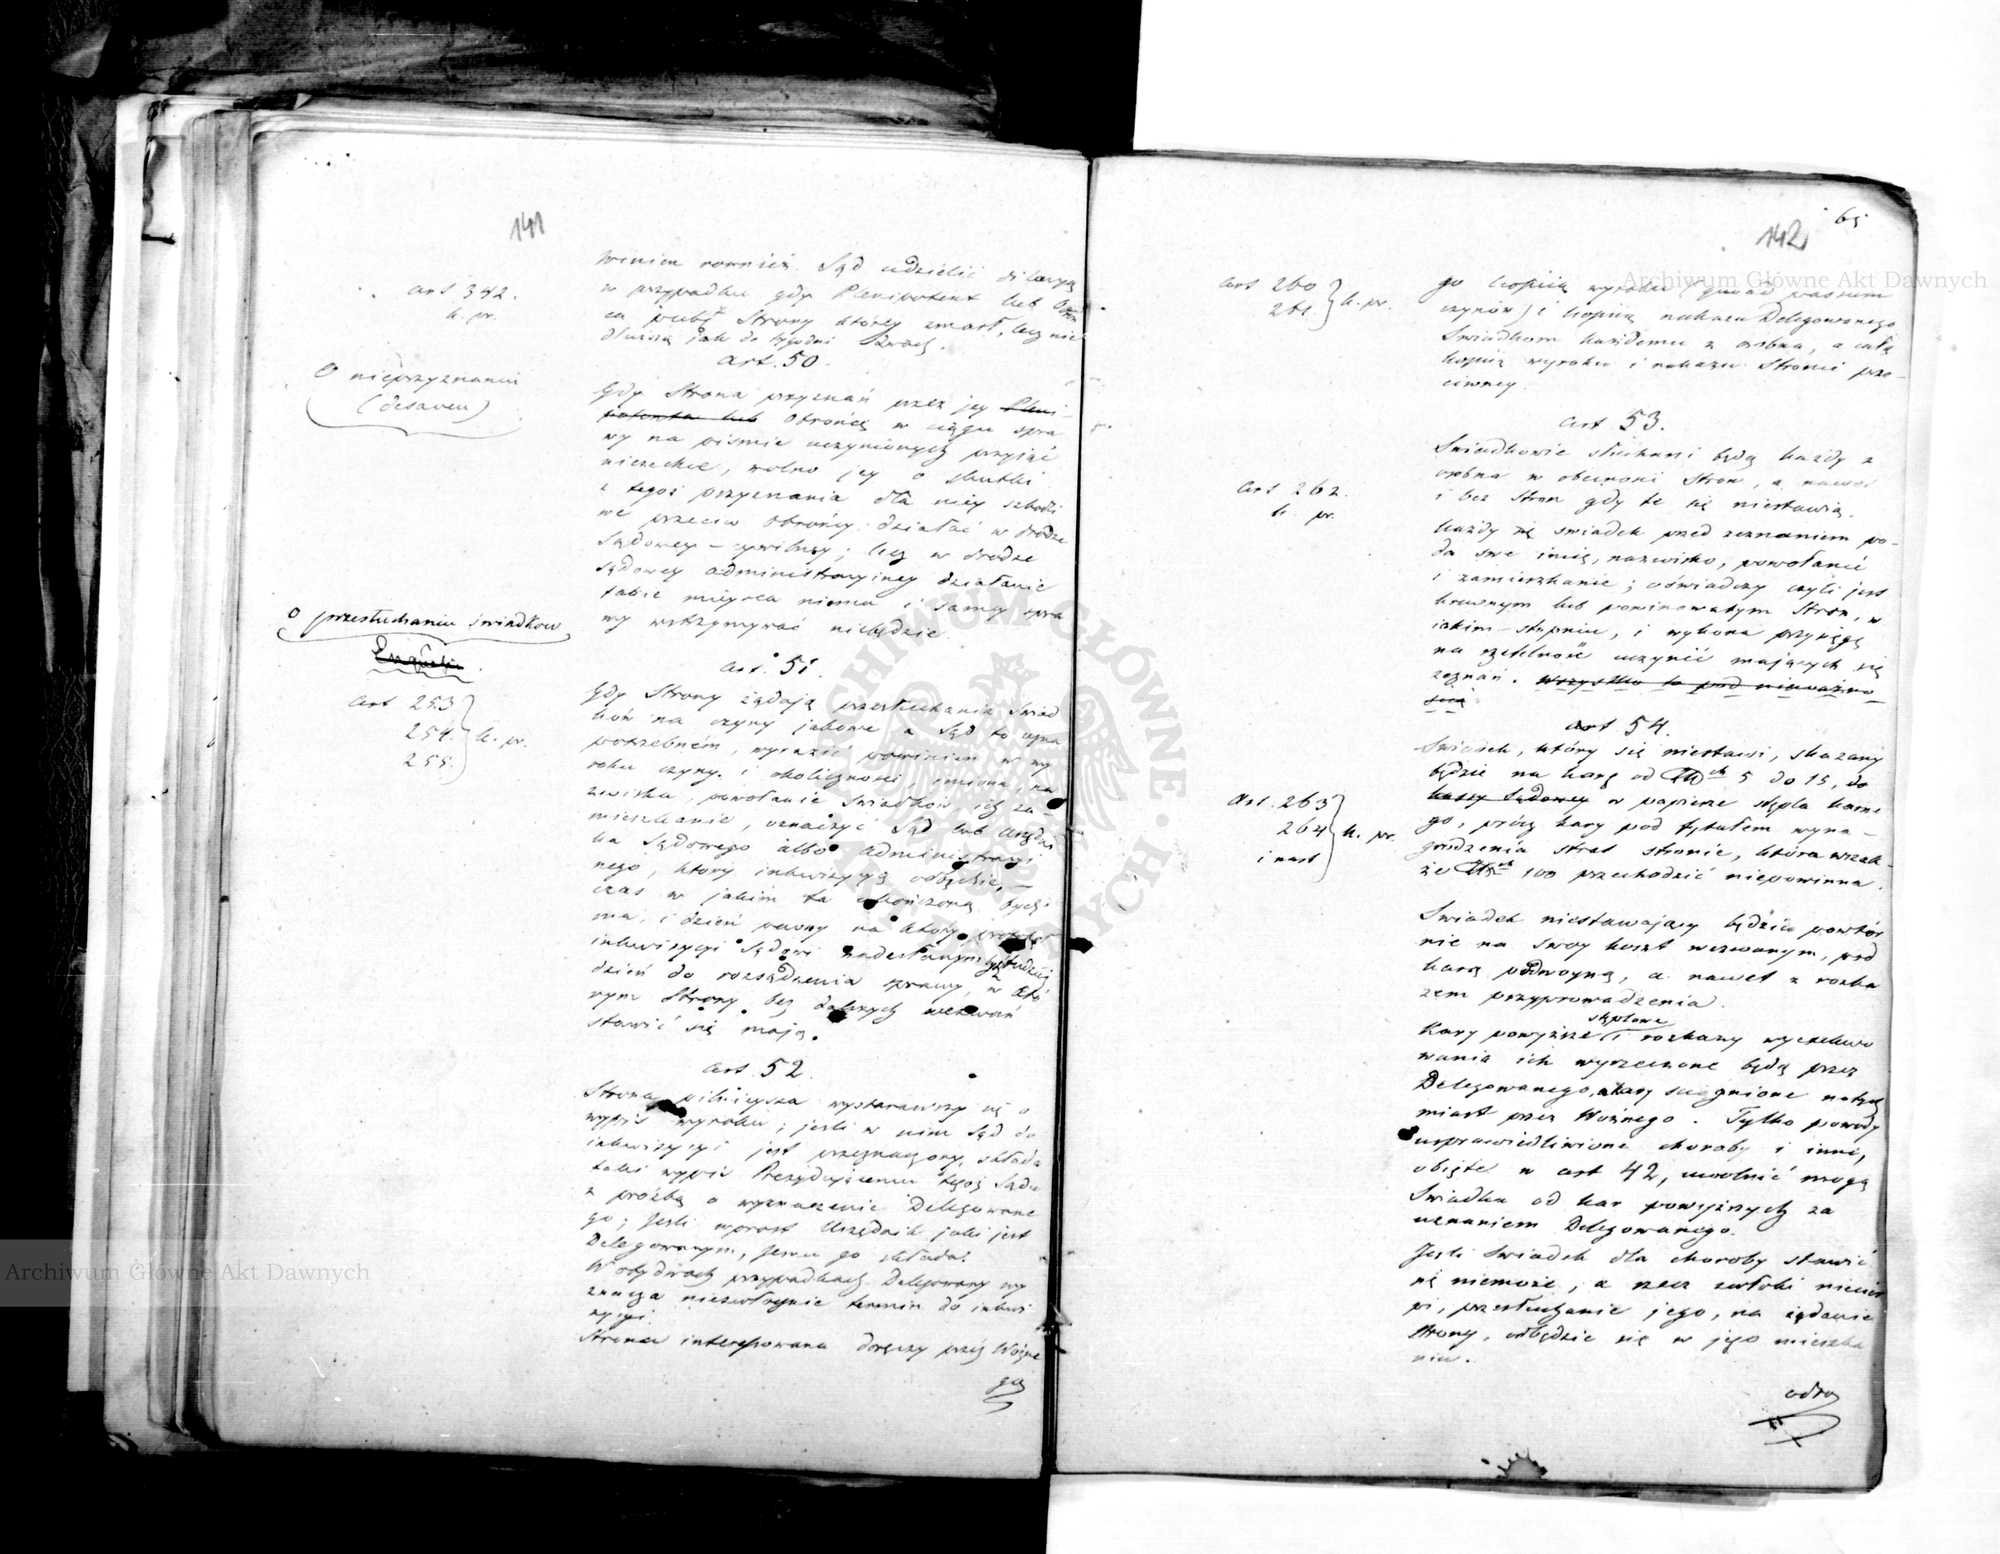 141
art 342.
k. pr.
winien rownież Sąd udzielić dilacyą
w przypadku gdy Plenipotent lub Obroń
ca Strony którey zmarł, lecz nie
dłuższą jak do tygodni dwóch.
art. 50.
O nieprzyznaniu
(desaveu)
Gdy Strona przyznań przez jey Pleni-
potenta lub Obrońcę w ciągu spra
wy na pismie uczynionych przyjąć
niezechce, wolno jey o skutki
z tegoż przyznania dla niey szkodli
we przeciw obrońcy działać w drodze
Sądowey-cywilney; lecz w drodze
sądowey administracyiney działanie
takie mieysca niema i samey spra
wy wstrzymywać niebędzie.
O przesłuchaniu świadkow
art. 51.
art 253
254.
255.
k. pr.
Gdy Strony żądają przesłuchania Swiad
ków na czyny jakowe a Sąd to uzna
potrzebnem, wyrazić powinien w wy
roku czyny i okoliczności, imiona, na
zwiska, powołanie Swiadków ich za-
mieszkanie, oznaczyć Sąd lub Urzędni
ka Sądowego albo administracyi
nego, ktory inkwizycyą odbędzie,-
czas w jakim ta ukończoną bydź
ma, i dzień pewny na który protokół
inkwizycyi Sądowi nadesłanym będzie
dzień do rozsądzenia sprawy, w któ
rym Strony bez dalszych wezwań
stawić się mają.
art. 52.
Strona pilnieysza wystarawszy się o
wypis wyroku; jesli w nim Sąd do
inkwizycyi jest przeznaczony, składa
taki wypis Prezydującemu tegoż Sądu
z prozbą o wyznaczenie Delegowane
go; Jesli wprost Urzędnik jaki jest
Delegowanym, Jemu go składa.
W obydwóch przypadkach Delegowany wy
znacza niezwłócznie termin do inkwi
zycyi.
Strona interessowana doręczy przez Woźne
go
142
65
art 260
261.
k. pr.
go kopiią wyroku (quoad passum
czynów) i kopiią nakazu Delegowanego
Swiadkom każdemu z osobna, a całą
kopiią wyroku i nakazu Stronie prze-
ciwney.
art. 53.
art 262.
k. pr.
Swiadkowie słuchani będą każdy z
osobna w obecnosci Stron, a nawet
i bez Stron gdy te się niestawią.
każdy świadek przed zeznaniem po-
da swe imię, nazwisko, powołanie
i zamieszkanie; oświadczy czyli jest
krewnym lub powinowatym Stron, w
jakim-stopniu, i wykona przysięgę
na rzetelność uczynić mających się
zeznań. Wszystko to pod nieważno
scią.
art 54.
art. 263
264
i nast
k. pr.
Swiadek, który się niestawi, skazany
będzie na karę od 5 do 15, do
kassy Sądowey w papierze stępla karne
go, prócz kary pod tytułem wyna-
grodzenia strat stronie, która wszak-
że 100 przechodzić niepowinna.
Swiadek niestawaiący będzie powtór
nie na swóy koszt wezwanym, pod
karą podwoyną, a nawet z rozka
zem przyprowadzenia.
stęplowe
Kary powyższe i rozkazy wyexekwo
wania ich wyrzeczone będą przez
Delegowanego, a kary sciągnione natych
miast przez Woźnego. Tylko powody
usprawiedliwione choroby i inne,
objęte w art 42, uwolnić mogą
Swiadka od kar powyższych za
uznaniem Delegowanego.
Jeśli Swiadek dla choroby stawić
się niemoże, a rzecz zwłoki niecier
pi, przesłuchanie jego, na żądanie
strony, odbędzie się w jego mieszka
niu.
Archiwum Główne Akt Dawnych
Archiwum Główne Akt Dawnych
ARCHIWUM GŁÓWNE AKT DAWNYCH